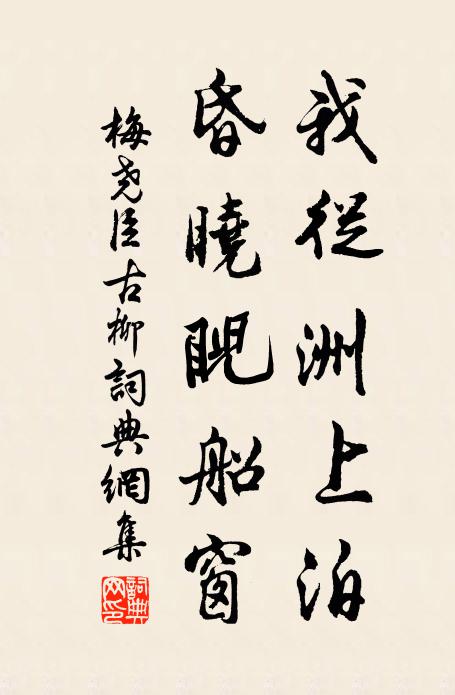 我從洲上泊
昏曉睨船窗
梅堯臣古柳詞典網集
詞典网印